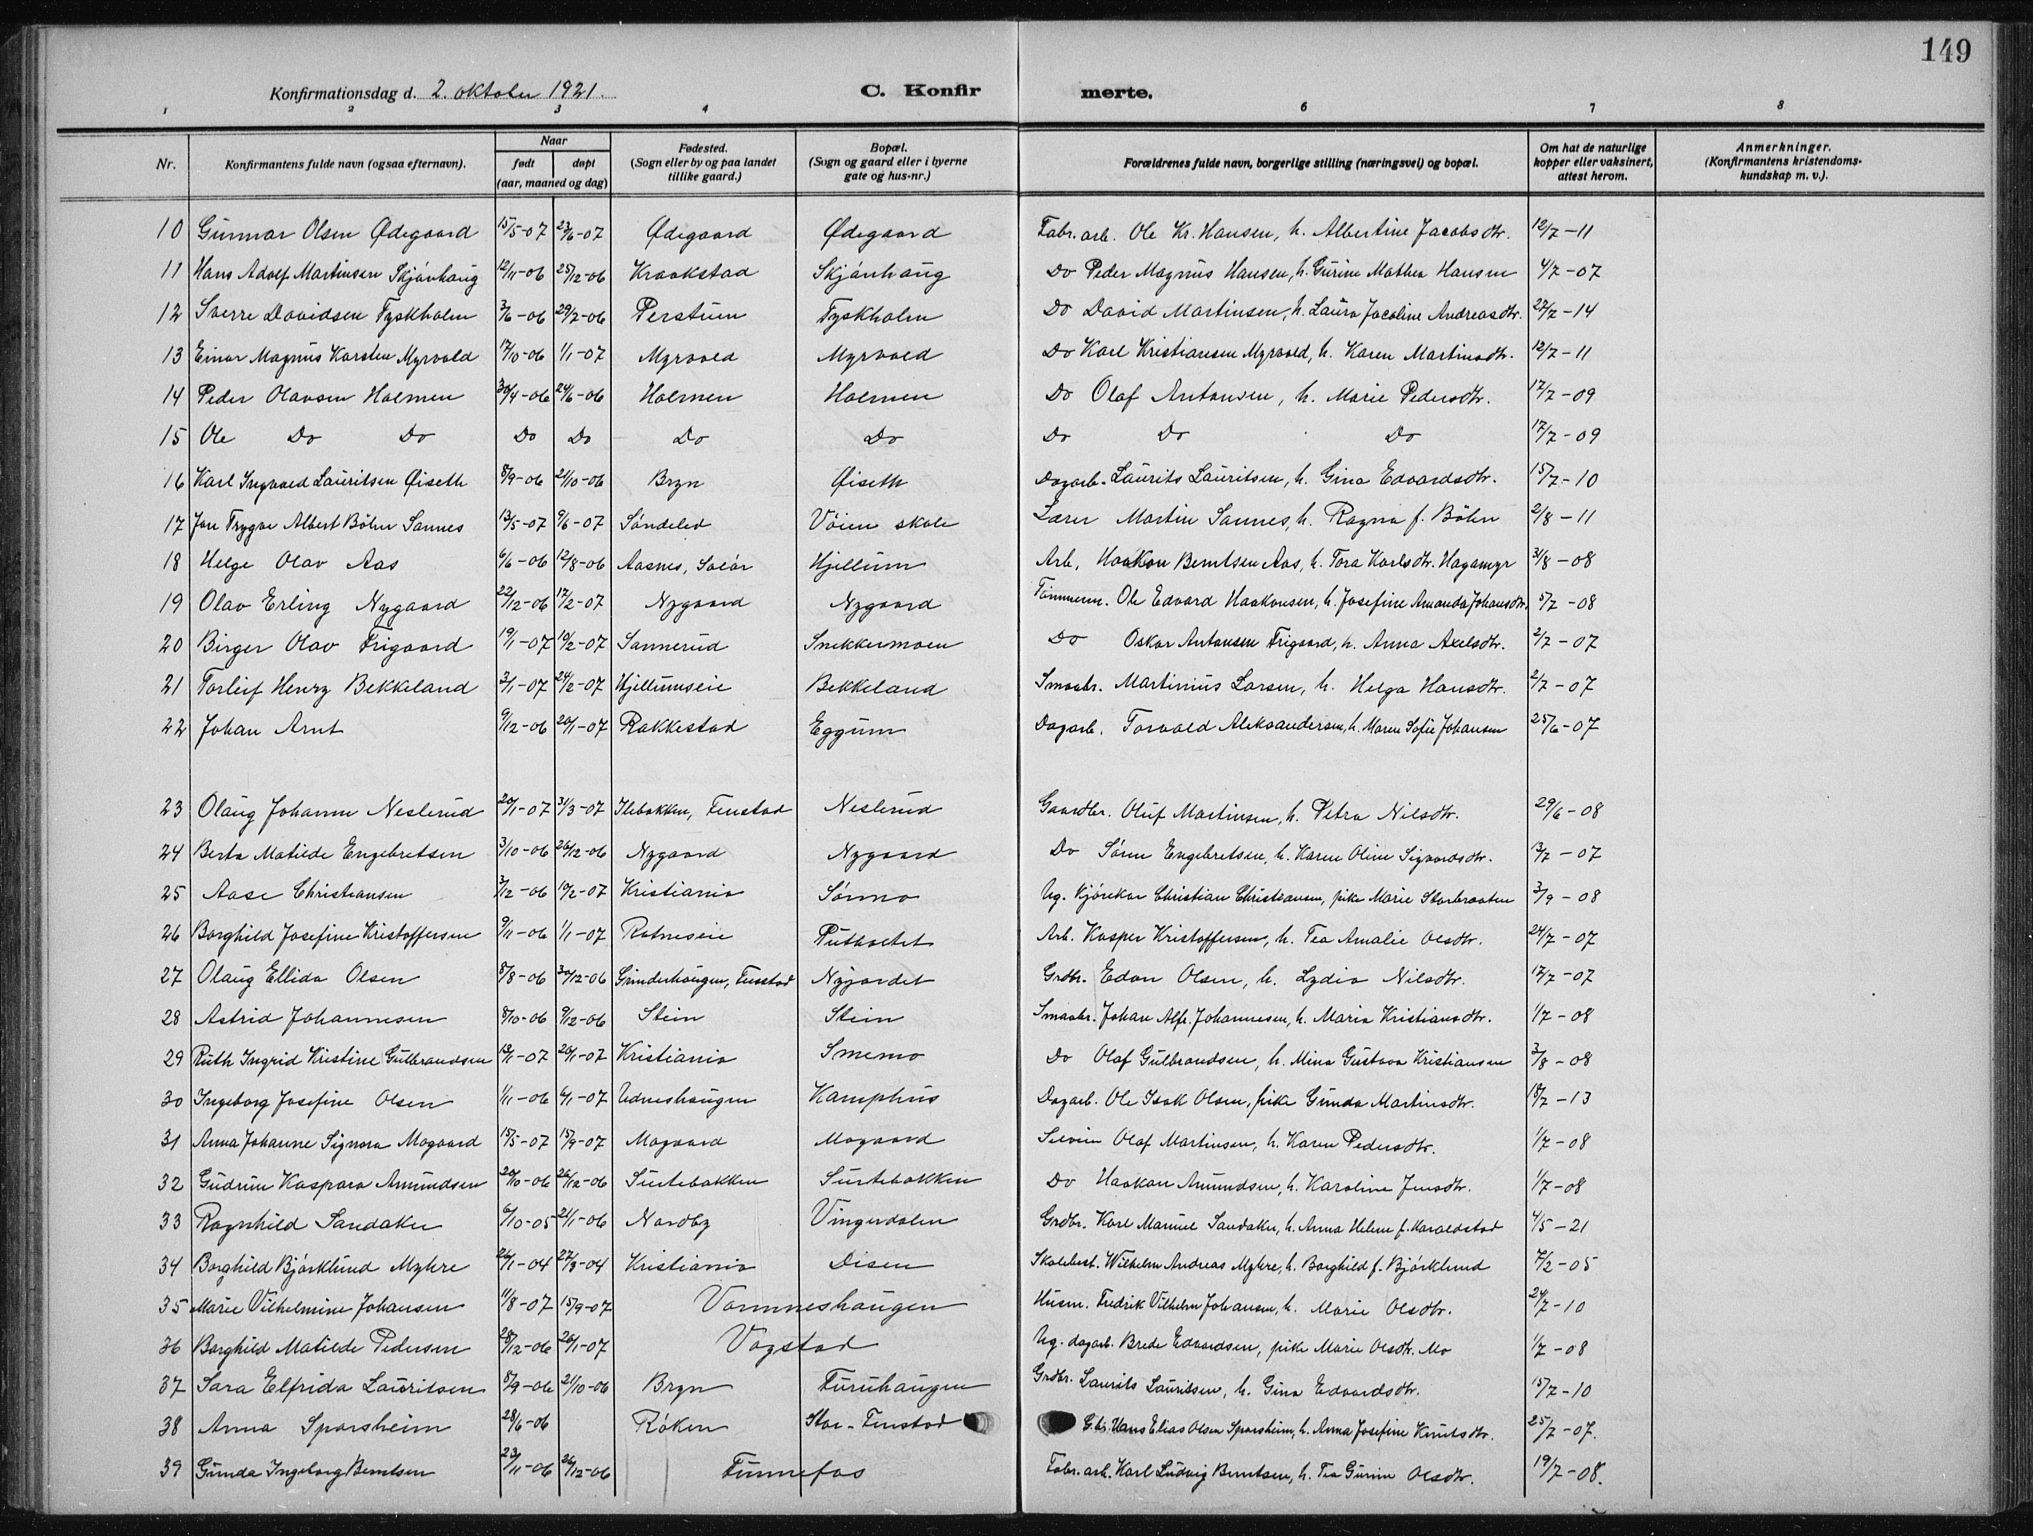 149
Konfirmationsdag d. 2. oktober 1921. C. Konfirmerte.
1 2 3 4 6 7 8
Nr. | Konfirmantens fulde navn (ogsaa efternavn). | Naar født døpt (aar, maaned og dag) | Fødested. (Sogn eller by og paa landet tillike gaard.) | Bopæl. (Sogn og gaard eller i byerne gate og hus-nr.) | Forældrenes fulde navn, borgerlige stilling (næringsvei) og bopæl. | Om hat de naturlige kopper eller vaksinert, attest herom. | Anmerkninger. (Konfirmantens kristendoms-kundskap m. v.).
10 Gunnar Olsen Ødegaard 15/5-07 23/6-07 Ødegaard Ødegaard Fabr. arb. Ole Kr. Hansen, h. Albertine Jacobsdtr. 12/7-11
11 Hans Adolf Martinsen Skjønhaug 12/11-06 25/12-06 Kraakstad Skjønhaug Do Peder Magnus Hansen, h. Gurine Mathea Hansen 4/7-07
12 Sverre Davidsen Tyskholm 3/6-06 29/7-06 Perstuen Tyskholm Do David Martinsen, h. Laura Jacoline Andreasdtr. 27/7-14
13 Einar Magnus Karsten Myrvold 17/10-06 1/1-07 Myrvold Myrvold Do Karl Kristiansen Myrvold, h. Karen Martinsdtr. 12/7-11
14 Peder Olavsen Holmen 30/4-06 24/6-06 Holmen Holmen Do Olaf Antonsen, h. Marie Pedersdtr. 17/7-09
15 Ole Do Do Do Do Do Do Do Do Do 17/7-09
16 Karl Ingvald Lauritsen Øiseth 8/9-06 21/10-06 Bryn Øiseth Dagarb. Laurits Lauritsen, h. Gina Edvardsdtr. 15/7-10
17 Jon Trygve Albert Bøhn Sannes 13/5-07 9/6-07 Søndeled Vøien skole Lærer Martin Sannes, h. Ragna f. Bøhn 2/8-11
18 Helge Olav Aas 6/6-06 12/8-06 Aasnes, Solør Hjellum Arb. Haakon Berntsen Aas, h. Tora Karlsdtr. Hagamyr 3/8-08
19 Olav Erling Nygaard 22/12-06 17/2-07 Nygaard Nygaard Tømmerm. Ole Edvard Haakonsen, h. Josefine Amanda Johansdtr. 5/7-08
20 Birger Olav Frigaard 19/1-07 10/2-07 Sannerud Snekkermoen Do Oskar Antonsen Frigaard, h. Anna Axelsdtr. 2/7-07
21 Torleif Henry Bekkeland 3/1-07 24/2-07 Hjellumseie Bekkeland Smaabr. Martinius Larsen, h. Helga Hansdtr. 2/7-07
22 Johan Arnt 9/12-06 20/1-07 Rakkestad Eggum Dagarb. Torvald Aleksandersen, h. Maren Sofie Johansen 25/6-07
23 Olaug Johanne Neslerud 20/1-07 31/3-07 Ilebakken, Fenstad Neslerud Gaardbr. Oluf Martinsen, h. Petra Nilsdtr. 29/6-08
24 Berta Matilde Engebretsen 3/10-06 26/12-06 Nygaard Nygaard Do Søren Engebretsen, h. Karen Oline Sigvardsdtr. 3/7-07
25 Aase Christiansen 3/12-06 10/2-07 Kristiania Sørmo Ug. kjørekar Christian Christiansen, pike Marie Storbraaten 3/9-08
26 Borghild Josefine Kristoffersen 9/11-06 1/1-07 Rotneseie Putholtet Arb. Kasper Kristoffersen, h. Tea Amalie Olsdtr. 24/7-07
27 Olaug Ellida Olsen 8/8-06 30/12-06 Grinderhaugen, Fenstad Nyjordet Grdbr. Edon Olsen, h. Lydia Nilsdtr. 17/7-07
28 Astrid Johannesen 8/10-06 9/12-06 Stein Stein Smaabr. Johan Alfr. Johannesen, h. Maria Kristiansdtr. 1/7-08
29 Ruth Ingrid Kristine Gulbrandsen 13/1-07 20/1-07 Kristiania Smemo Do Olaf Gulbrandsen, h. Mina Gustava Kristiansen 3/8-08
30 Ingeborg Josefine Olsen 1/11-06 6/1-07 Udneshaugen Kamphus Dagarb. Ole Isak Olsen, pike Gunda Martinsdtr. 18/7-13
31 Anna Johanne Signora Mogaard 15/5-07 15/9-07 Mogaard Mogaard Selvein Olaf Martinsen, h. Karen Pedersdtr. 1/7-08
32 Gudrun Kaspara Amundsen 20/10-06 26/12-06 Surtebakken Surtebakken Do Haakon Amundsen, h. Karoline Jensdtr. 1/7-08
33 Ragnhild Sandaker 6/10-05 21/1-06 Nordby Vingerdalen Grdbr. Karl Manuel Sandaker, h. Anna Helene f. Haraldstad 4/5-21
34 Borghild Bjørklund Myhre 26/1-04 27/3-04 Kristiania Disen Skolebest. Wilhelm Andreas Myhre, h. Borghild f. Bjørklund 7/2-05
35 Marie Vilhelmine Johansen 11/8-07 15/9-07 Vamneshaugen Husm. Fredrik Vilhelm Johansen, h. Marie Olsdtr. 24/7-10
36 Borghild Matilde Pedersen 28/12-06 20/1-07 Vogstad Ug. dagarb. Brede Edvardsen, pike Marie Olsdtr. Mo 1/7-08
37 Sara Elfrida Lauritsen 8/9-06 21/10-06 Bryn Furuhaugen Grdbr. Laurits Lauritsen, h. Gina Edvardsdtr. 15/7-10
38 Anna Sporsheim 28/6-06 Røken Stor-Fenstad Hans Elias Olsen Sporsheim, h. Anna Josefine Knutsdtr. 25/7-07.
39 Gunda Ingeborg Berntsen 23/11-06 26/12-06 Funnefos Fabr. arb. Karl Ludvig Berntsen, h. Tea Gurine Olsdtr. 19/7-08.